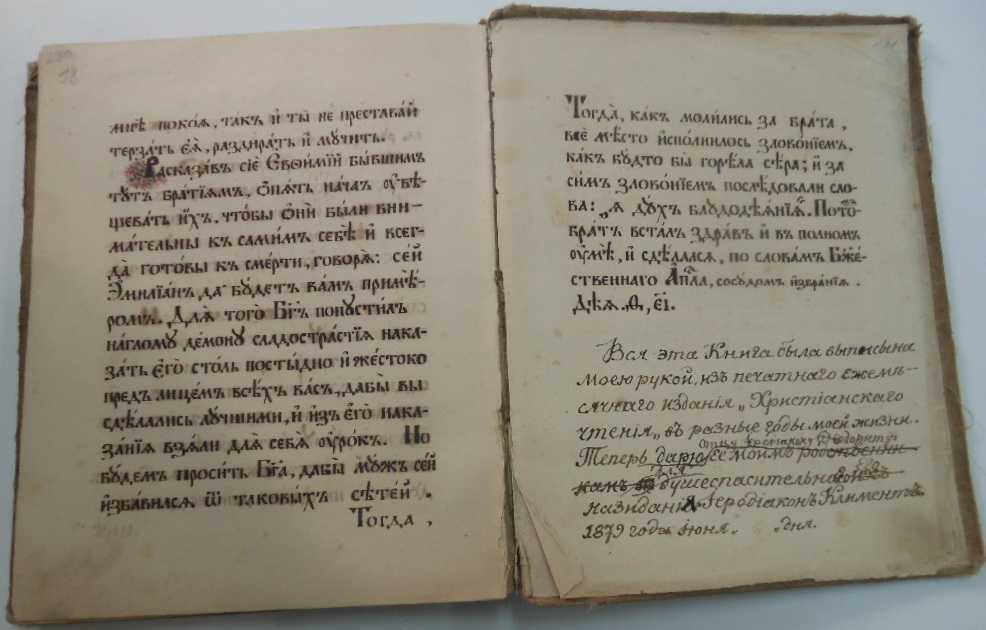 мнѣ покоѧ, такъ и҆ ты̀ не преставай
терза́ть є҆ѧ̀, раздира́ть и҆ мꙋ́чить.
Расказавъ сїѐ Єѵѳи́мїй бы́вшимъ
тꙋ́тъ бра́тїѧмъ, ѻ҆пѧ́ть нача́лъ ᲂу҆вѣ-
щева́ть и҆́хъ, что́бы ѻ҆нѝ бы́ли вни-
ма́тельны къ сами́мъ себѣ̀ и҆ всег-
да̀ гото́вы къ сме́рти, говорѧ̀: се́й
Э҆миліа́нъ, да̀ бꙋ́детъ ва́мъ примѣ́-
ромъ. Длѧ̀ того̀ Бг҃ъ попꙋсти́лъ
на́глому де́мону сладостра́стїѧ нака-
за́ть є҆го̀ сто́ль посты́дно и҆ же́стоко
предъ лице́мъ всѣ́хъ ва́съ, дабы̀ вы̀
сдѣ́лались лꙋ́чшими, и҆ и҆зъ є҆го̀ нака-
за́нїѧ взѧ́ли длѧ̀ себѧ̀ ᲂу҆ро́къ. Но
бꙋ́демъ проси́ть Бг҃а, дабы̀ мꙋ́жъ се́й
и҆зба́вилсѧ ѿ таковы́хъ сѣте́й.
Тогда,
Тогда̀, ка́къ моли́лись за бра́та,
всѐ мѣ́сто и҆спо́лнилось злово́нїемъ,
ка́къ бꙋ́дто бы горѣ́ла сѣ́ра; и҆ за
си́мъ злово́нїемъ послѣ́довали сло-
ва: „ѧ дꙋ́хъ блꙋдодѣѧ́нїѧ". Пото́м
бра́тъ вста́лъ здра́въ и҆ въ по́лномъ
ᲂу҆мѣ̀, и҆ сдѣ́лалсѧ, по слова́мъ Бж҃е-
ственнаго А҆пⷭ҇ла, сосꙋ́домъ и҆збра́нїѧ.
Дѣѧ. Ѳ, є҃і.
Вся эта Книга была выписына
моею рукой, изъ печатнаго ежемѣ-
сячнаго изданія „Христіанскаго
чтенія„ въ разные годы моей жизни.
отцу ѳеодориту
Теперь дарю ее моимъ родственни-
камъ для душеспасительнаго
назиданія Іеродіаконъ Климентъ.
1879 года іюня „ „дня.